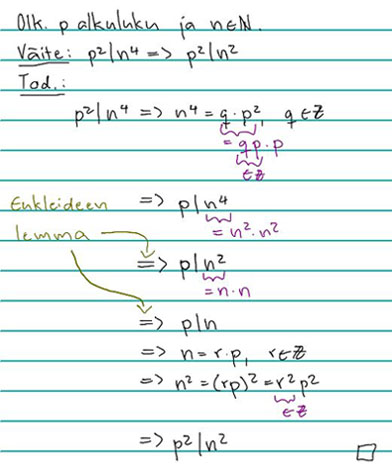 Olk. p alkuluku ja n∈ℕ.
Väite: p²|n⁴ => p²|n²
Tod.:
p²|n⁴ => n⁴ = q·p², q∈ℤ
= qp·p
∈ℤ
=> p|n⁴
= n²·n²
Eukleideen
lemma
=> p|n²
= n·n
=> p|n
=> n = r·p, r∈ℤ
=> n² = (rp)² = r²p²
∈ℤ
=> p²|n² □